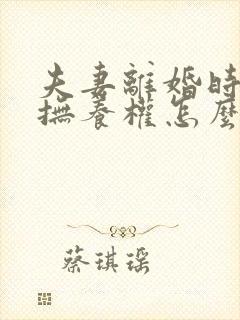 夫妻離婚時
撫養權怎麼
蔡琪瑶